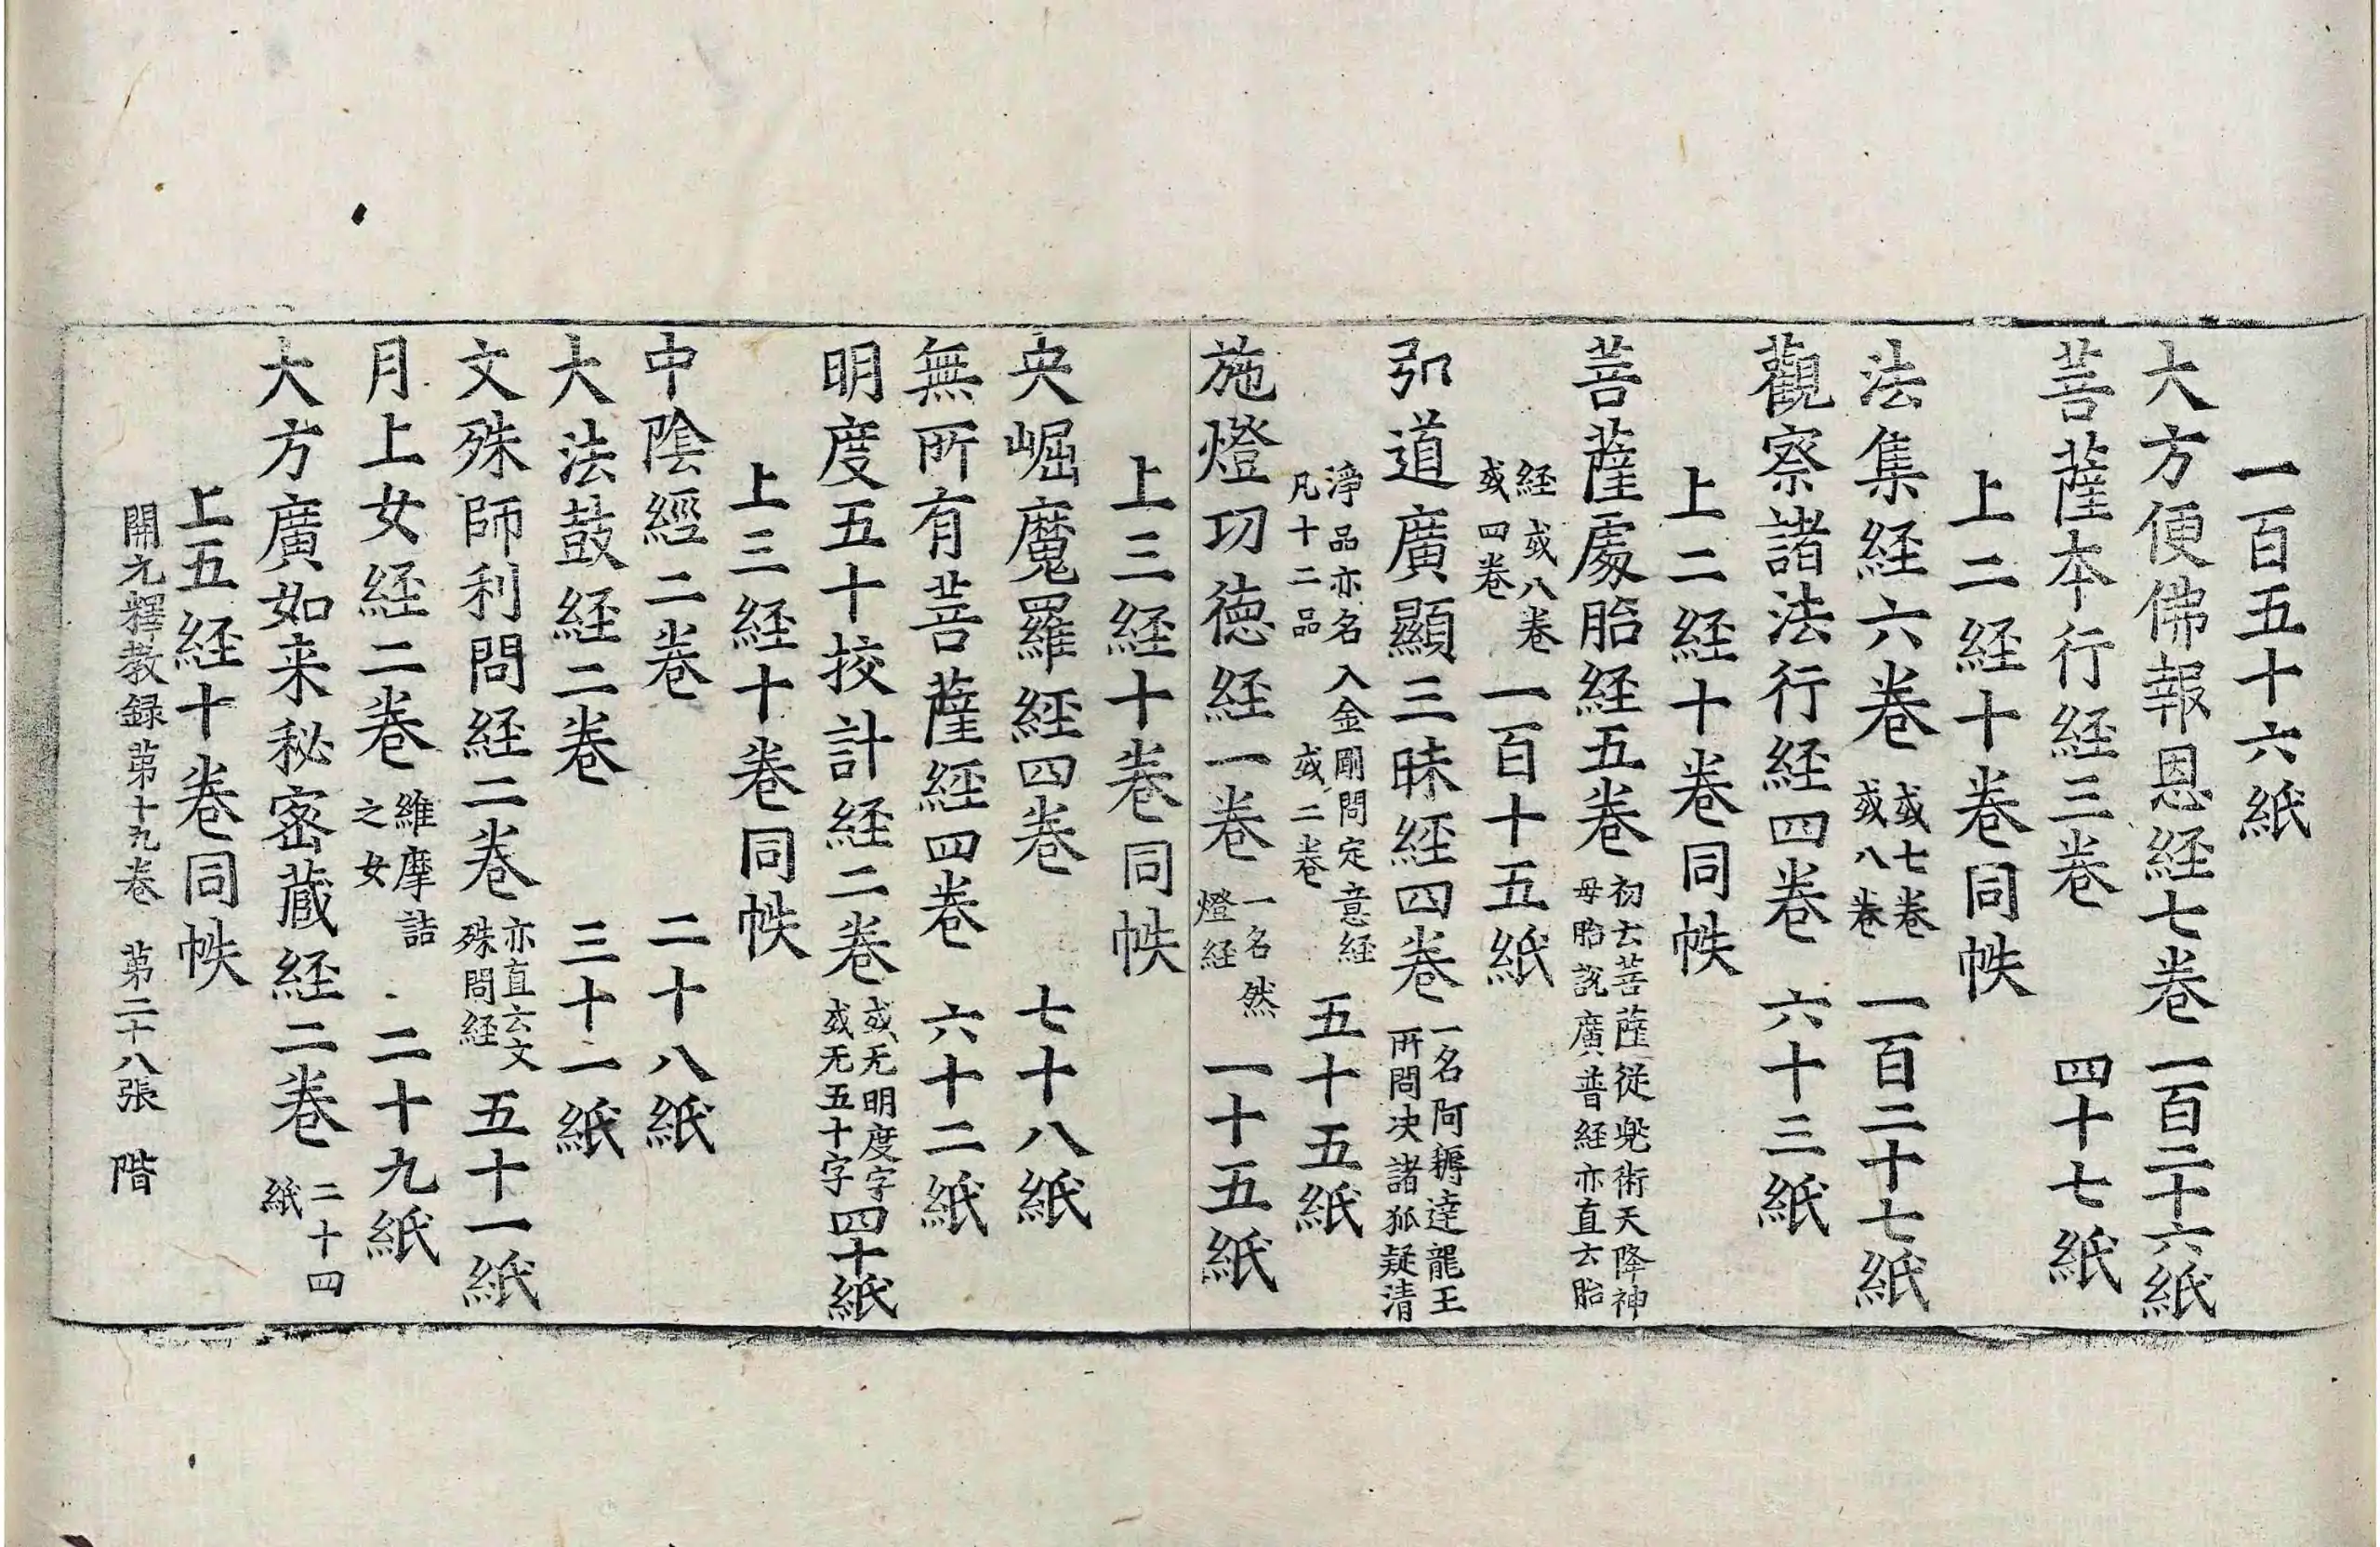 一百五十六紙
大方便佛報恩経七卷 一百二十六紙
菩薩本行経三卷 四十七紙
上二経十卷同帙
法集経六卷 或七卷 或八卷 一百二十七紙
觀察諸法行経四卷 六十三紙
上二経十卷同帙
菩薩處胎経五卷 初云菩薩從兠術天降神 母胎說廣普経亦直云胎
経或八卷 或四卷 一百十五紙
弘道廣顯三昧経四卷 一名阿耨達龍王 所問决諸狐疑清
淨品亦名入金剛問定意経 凡十二品或二卷 五十五紙
施燈功德経一卷 一名然 燈経 一十五紙
上三経十卷同帙
央崛魔羅經四卷 七十八紙
無所有菩薩經四卷 六十二紙
明度五十挍計経二卷 或无明度字 或无五十字 四十紙
上三経十卷同帙
中陰經二卷 二十八紙
大法鼓経二卷 三十一紙
文殊師利問経二卷 亦直云文 殊問経 五十一紙
月上女経二卷 維摩詰 之女 二十九紙
大方廣如来秘密蔵経二卷 二十四 紙
上五経十卷同帙
開元釋教録第十九卷 第二十八張 階